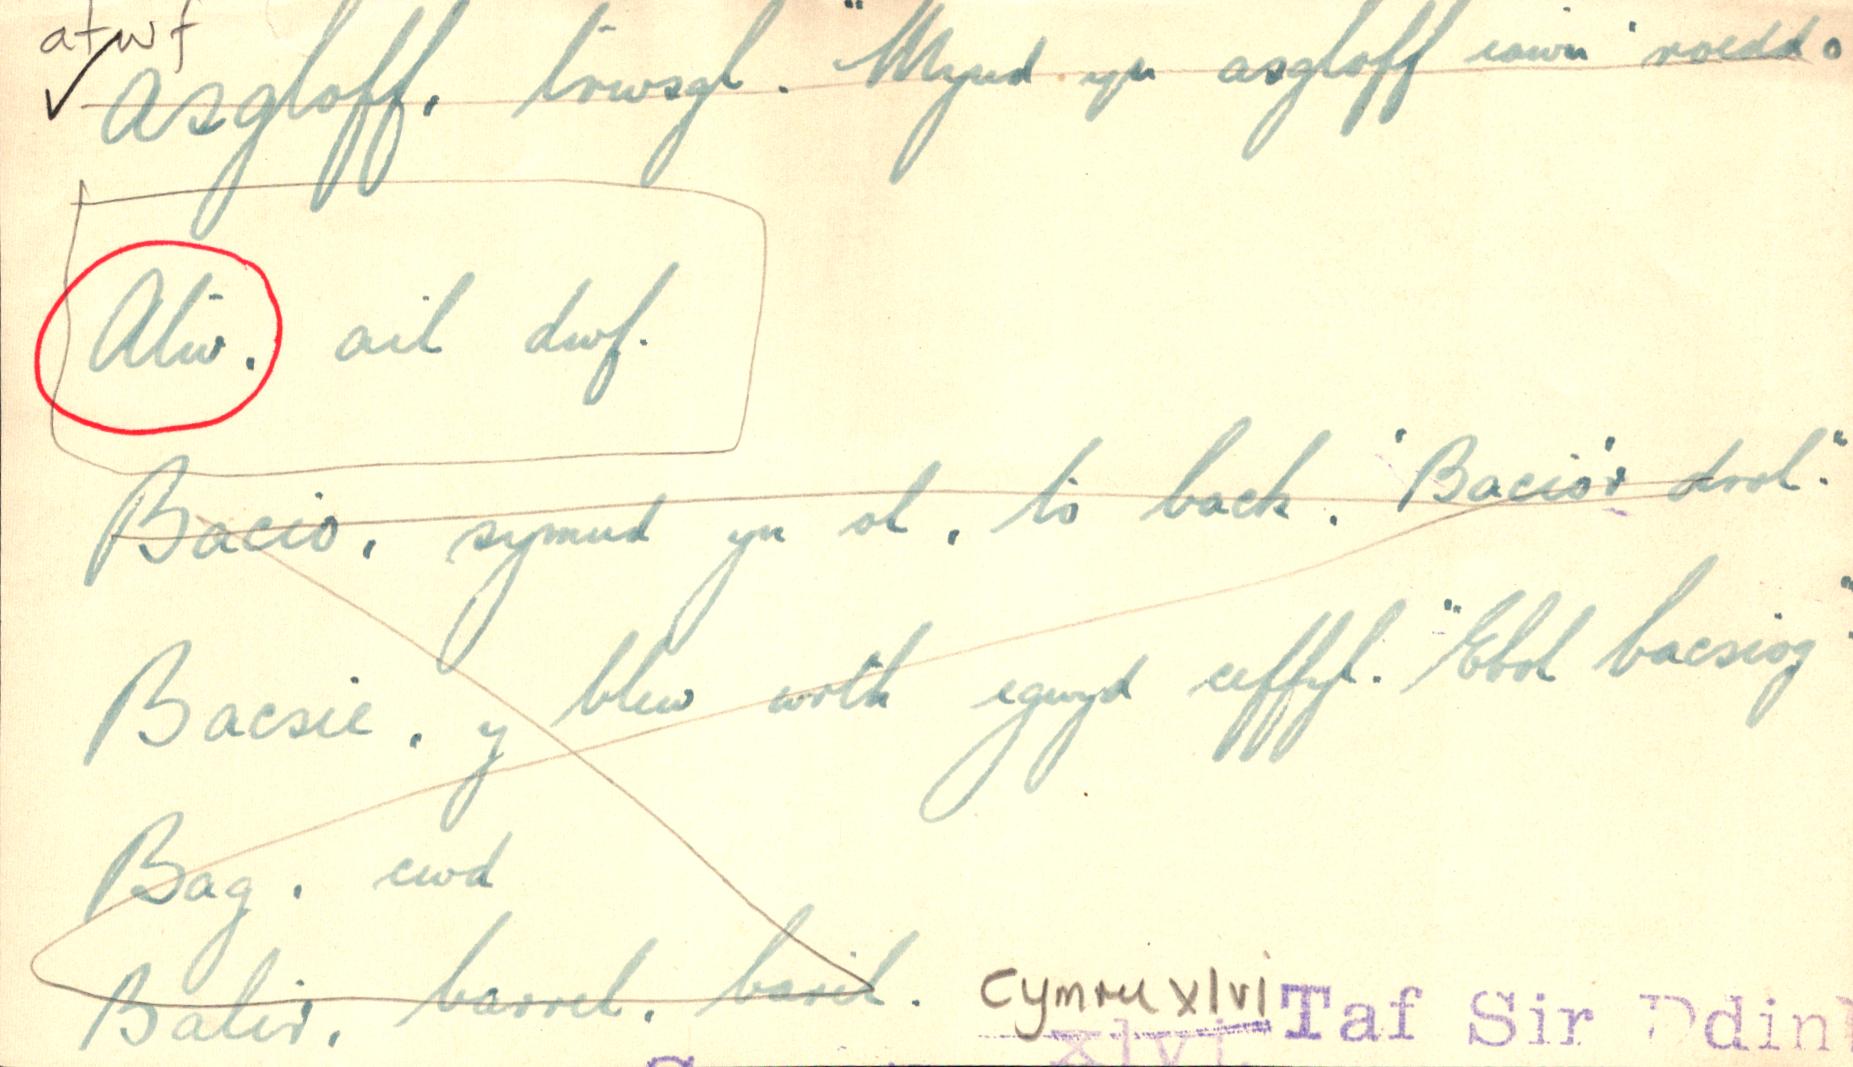 atwf
Asgloff. trwsgl. "Mynd yn asgloff iawn" roedd.
Atw. ail dwf.
Bacio. symud yn ol. to back. "Bacio'r drol."
Bacsie. y blew wrth egwyd ceffyl. "Ebol bacsiog"
Bag. cwd
Balir. barrel. baril. Cymru xlvi Taf Sir Ddin
xlvi